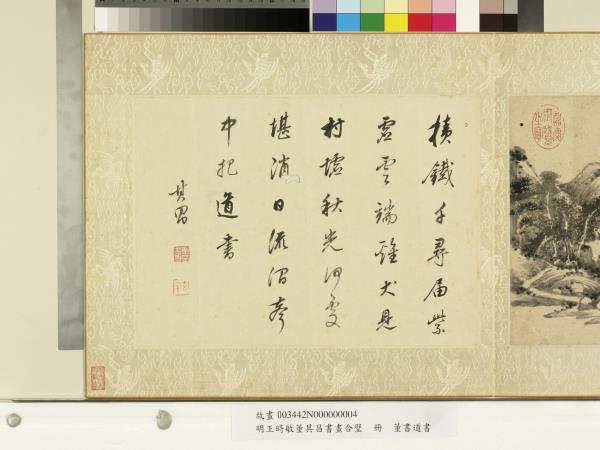 積鐵千尋屆紫
虛雲端雞犬見
村墟秋光何處
堪消日流澗聲
中把道書
其昌
故畫 003442N000000004
明王時敏董其昌書畫合璧 冊 董書道書